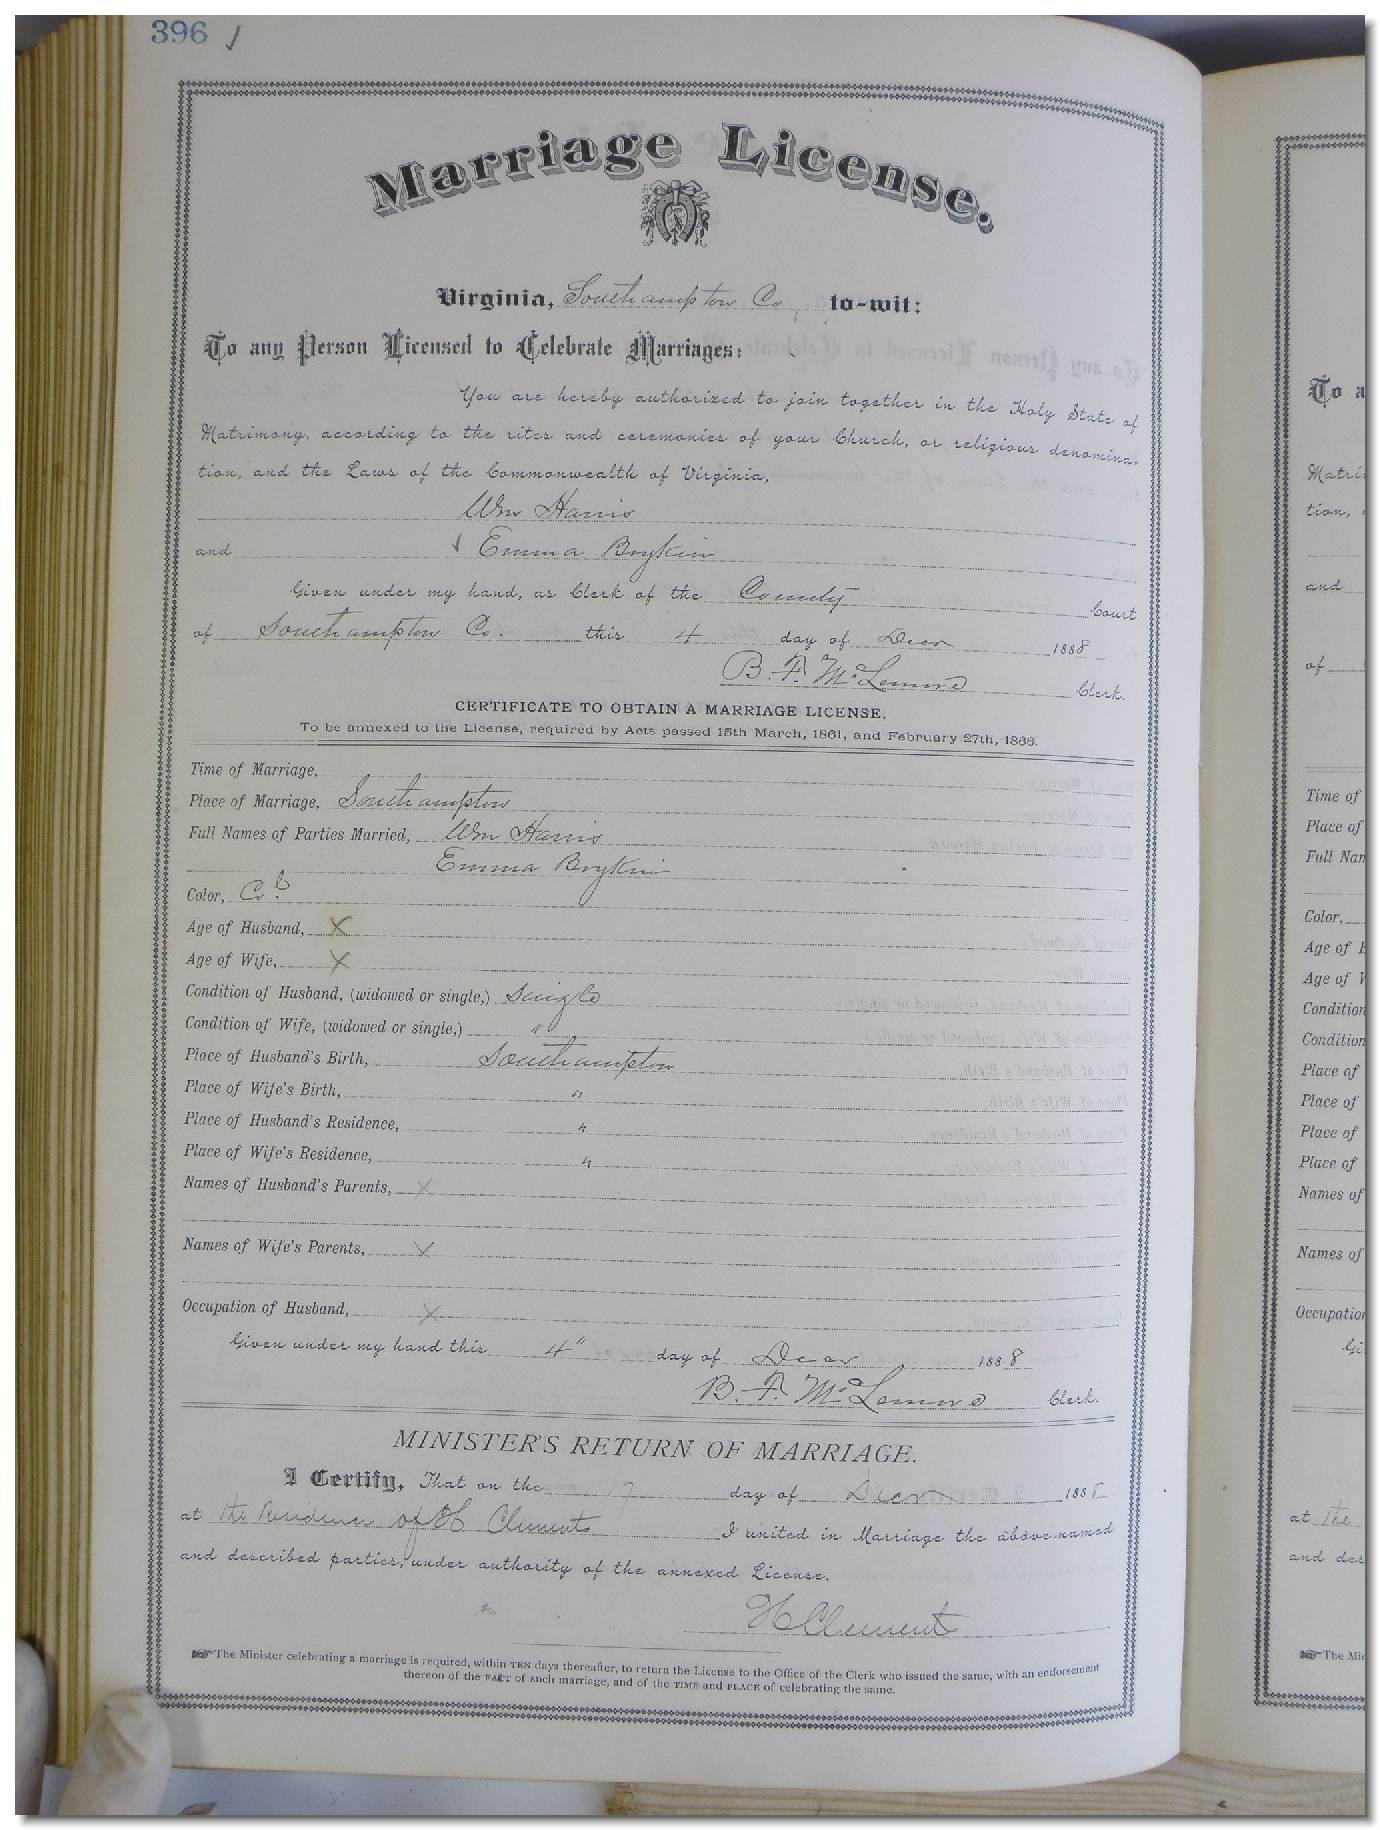 396 ✓
Marriage License.
Virginia, Southampton Co, to-wit:
To any Person Licensed to Celebrate Marriages:
You are hereby authorized to join together in the Holy State of
Matrimony, according to the rites and ceremonies of your Church, or religious denomina-
tion, and the Laws of the Commonwealth of Virginia,
Wm Harris
and ✓ Emma Boykin
Given under my hand, as Clerk of the County Court
of Southampton Co. this 4 day of Decr 1888
B. F. McLemore Clerk.
CERTIFICATE TO OBTAIN A MARRIAGE LICENSE.
To be annexed to the License, required by Acts passed 15th March, 1861, and February 27th, 1866.
Time of Marriage,
Place of Marriage, Southampton
Full Names of Parties Married, Wm Harris
Emma Boykin
Color, Col.
Age of Husband, X
Age of Wife, X
Condition of Husband, (widowed or single,) Single
Condition of Wife, (widowed or single,) "
Place of Husband's Birth, Southampton
Place of Wife's Birth, "
Place of Husband's Residence, "
Place of Wife's Residence, "
Names of Husband's Parents, X
Names of Wife's Parents, X
Occupation of Husband, X
Given under my hand this 4" day of Decr 1888
B. F. McLemore Clerk.
MINISTER'S RETURN OF MARRIAGE.
I Certify, That on the 17 day of Decr 1888
at the Residence of H Clements I united in Marriage the above-named
and described parties, under authority of the annexed License.
H Clements
The Minister celebrating a marriage is required, within TEN days thereafter, to return the License to the Office of the Clerk who issued the same, with an endorsement
thereon of the FACT of such marriage, and of the TIME and PLACE of celebrating the same.
To a
Matri
tion,
and
of
Time of
Place of
Full Nam
Color,
Age of H
Age of W
Condition
Condition
Place of
Place of
Place of
Place of
Names of
Names of
Occupation
Gi
at the
and des
The Mi